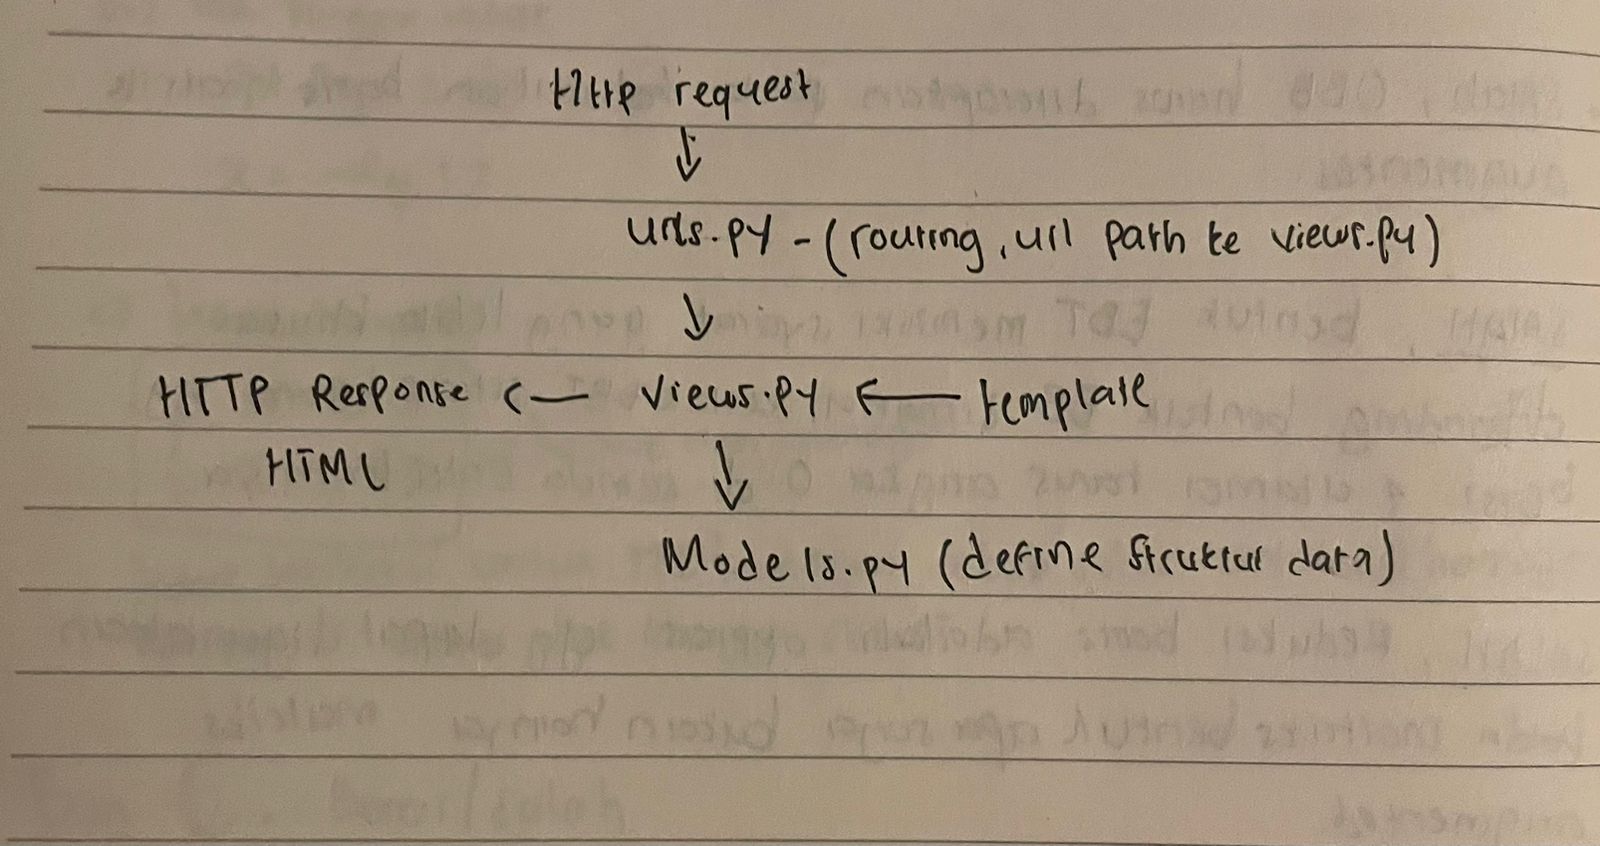 Http request
↓
urls.py - (routing, url path ke views.py)
↓
HTTP Response ← views.py ← template
HTML
↓
Models.py (define struktur data)